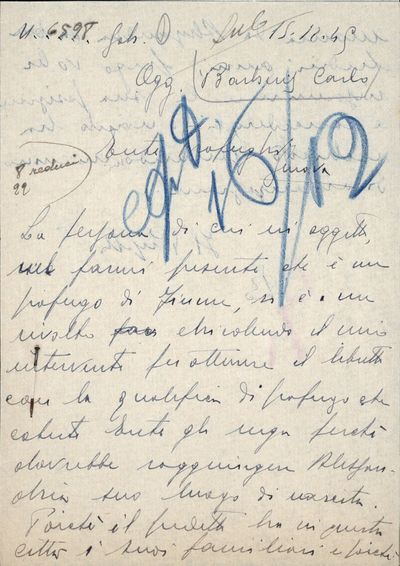 N. 6598. Gab. 15.12.45
Ogg. Barbieri Carlo
16/12
Ente Profughi
Genova
8 reduci
22
La persona di cui in oggetto,
nel farmi presente che è un
profugo di Fiume, si è a me
rivolto chiedendo il mio
intervento per ottenere il libretto
con la qualifica di profugo che
codesto Ente gli nega perchè
dovrebbe raggiungere Alessan-
dria suo luogo di nascita.
Poichè il predetto ha in questa
città i suoi familiari e poichè